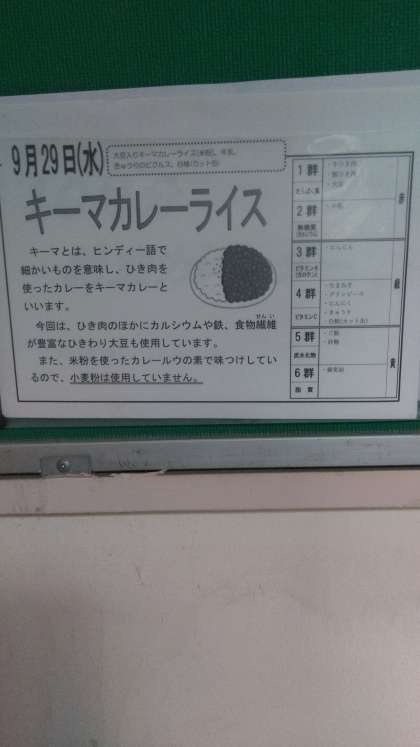 9月29日(水)
大豆入りキーマカレーライス(米粉)、牛乳、
きゅうりのピクルス、白桃(カット缶)
キーマカレーライス
キーマとは、ヒンディー語で
細かいものを意味し、ひき肉を
使ったカレーをキーマカレーと
いいます。
今回は、ひき肉のほかにカルシウムや鉄、食物繊維
せんい
が豊富なひきわり大豆も使用しています。
また、米粉を使ったカレールウの素で味つけしてい
るので、小麦粉は使用していません。
1群
たんぱく質
・大豆
赤
2群
無機質
(カルシウム)
・牛乳
3群
ビタミンA
(カロテン)
・にんじん
緑
4群
ビタミンC
・たまねぎ
・グリンピース
・にんにく
・きゅうり
・白桃(カット缶)
5群
炭水化物
・ご飯
・砂糖
黄
6群
脂質